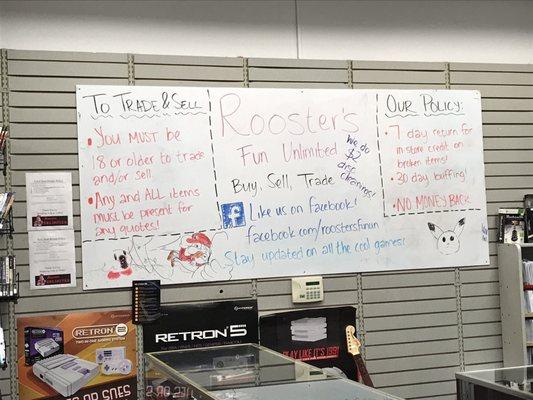 To Trade & Sell
• You must be
18 or older to trade
and/or sell.
• Any and all items
must be present for
any quotes!
Rooster's
Fun Unlimited
Buy, Sell, Trade
We do
$2
disc
cleanings!
Like us on Facebook!
facebook.com/roostersfunun
Stay updated on all the cool games!
Our Policy:
• 7 day return for
in store credit on
broken items!
• 30 day buffing!
• No money back
RETRON 5
RETRON
PLAY MORE